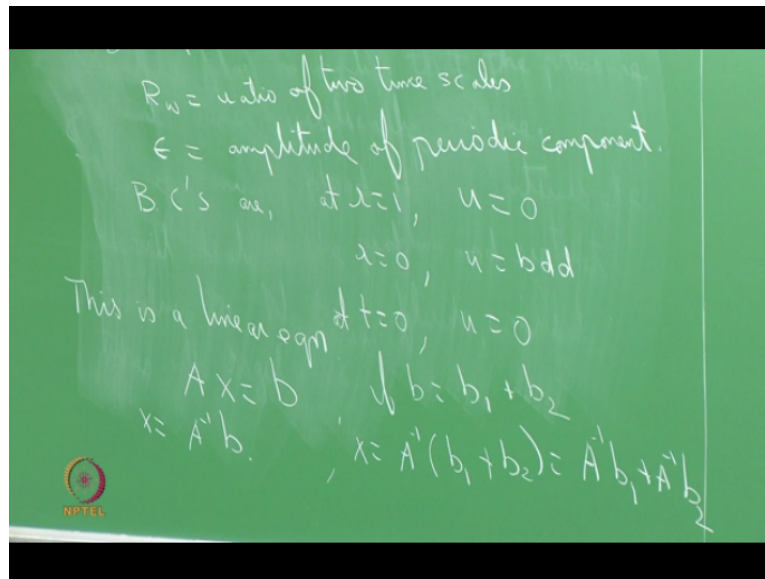 R_ω = ratio of two time scales
ϵ = amplitude of periodic component.
BC's are, at r=1, u=0
r=0, u=bdd
This is a linear eqn at t=0, u=0
Ax=b if b=b₁+b₂
x=A⁻¹b. , x=A⁻¹(b₁+b₂)=A⁻¹b₁+A⁻¹b₂
NPTEL